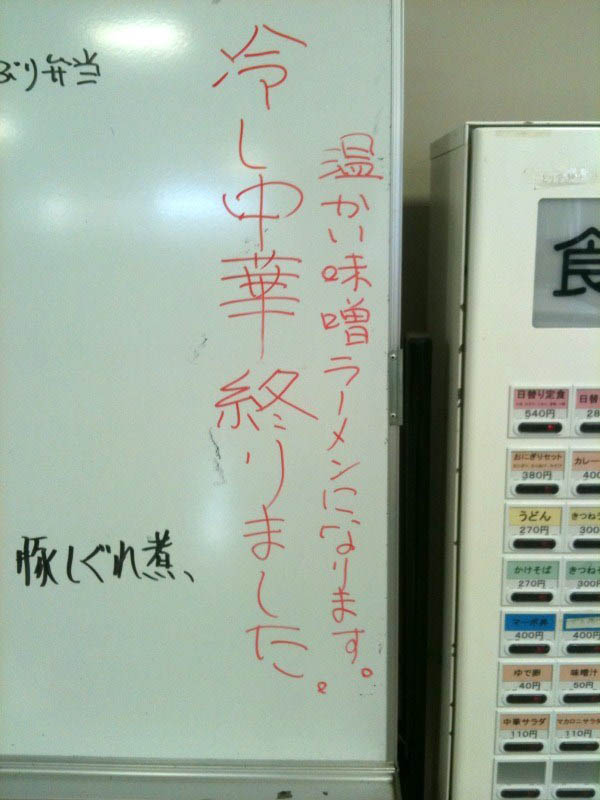 温かい味噌ラーメンになります。
冷し中華終りました。
ぶり弁当
豚しぐれ煮、
食
日替り定食
540円
日替
28
おにぎりセット
380円
カレー
400
うどん
270円
きつねう
300
かけそば
270円
きつねそ
300
マーボ丼
400円
400円
ゆで卵
40円
味噌汁
50円
中華サラダ
110円
マカロニサラダ
110円